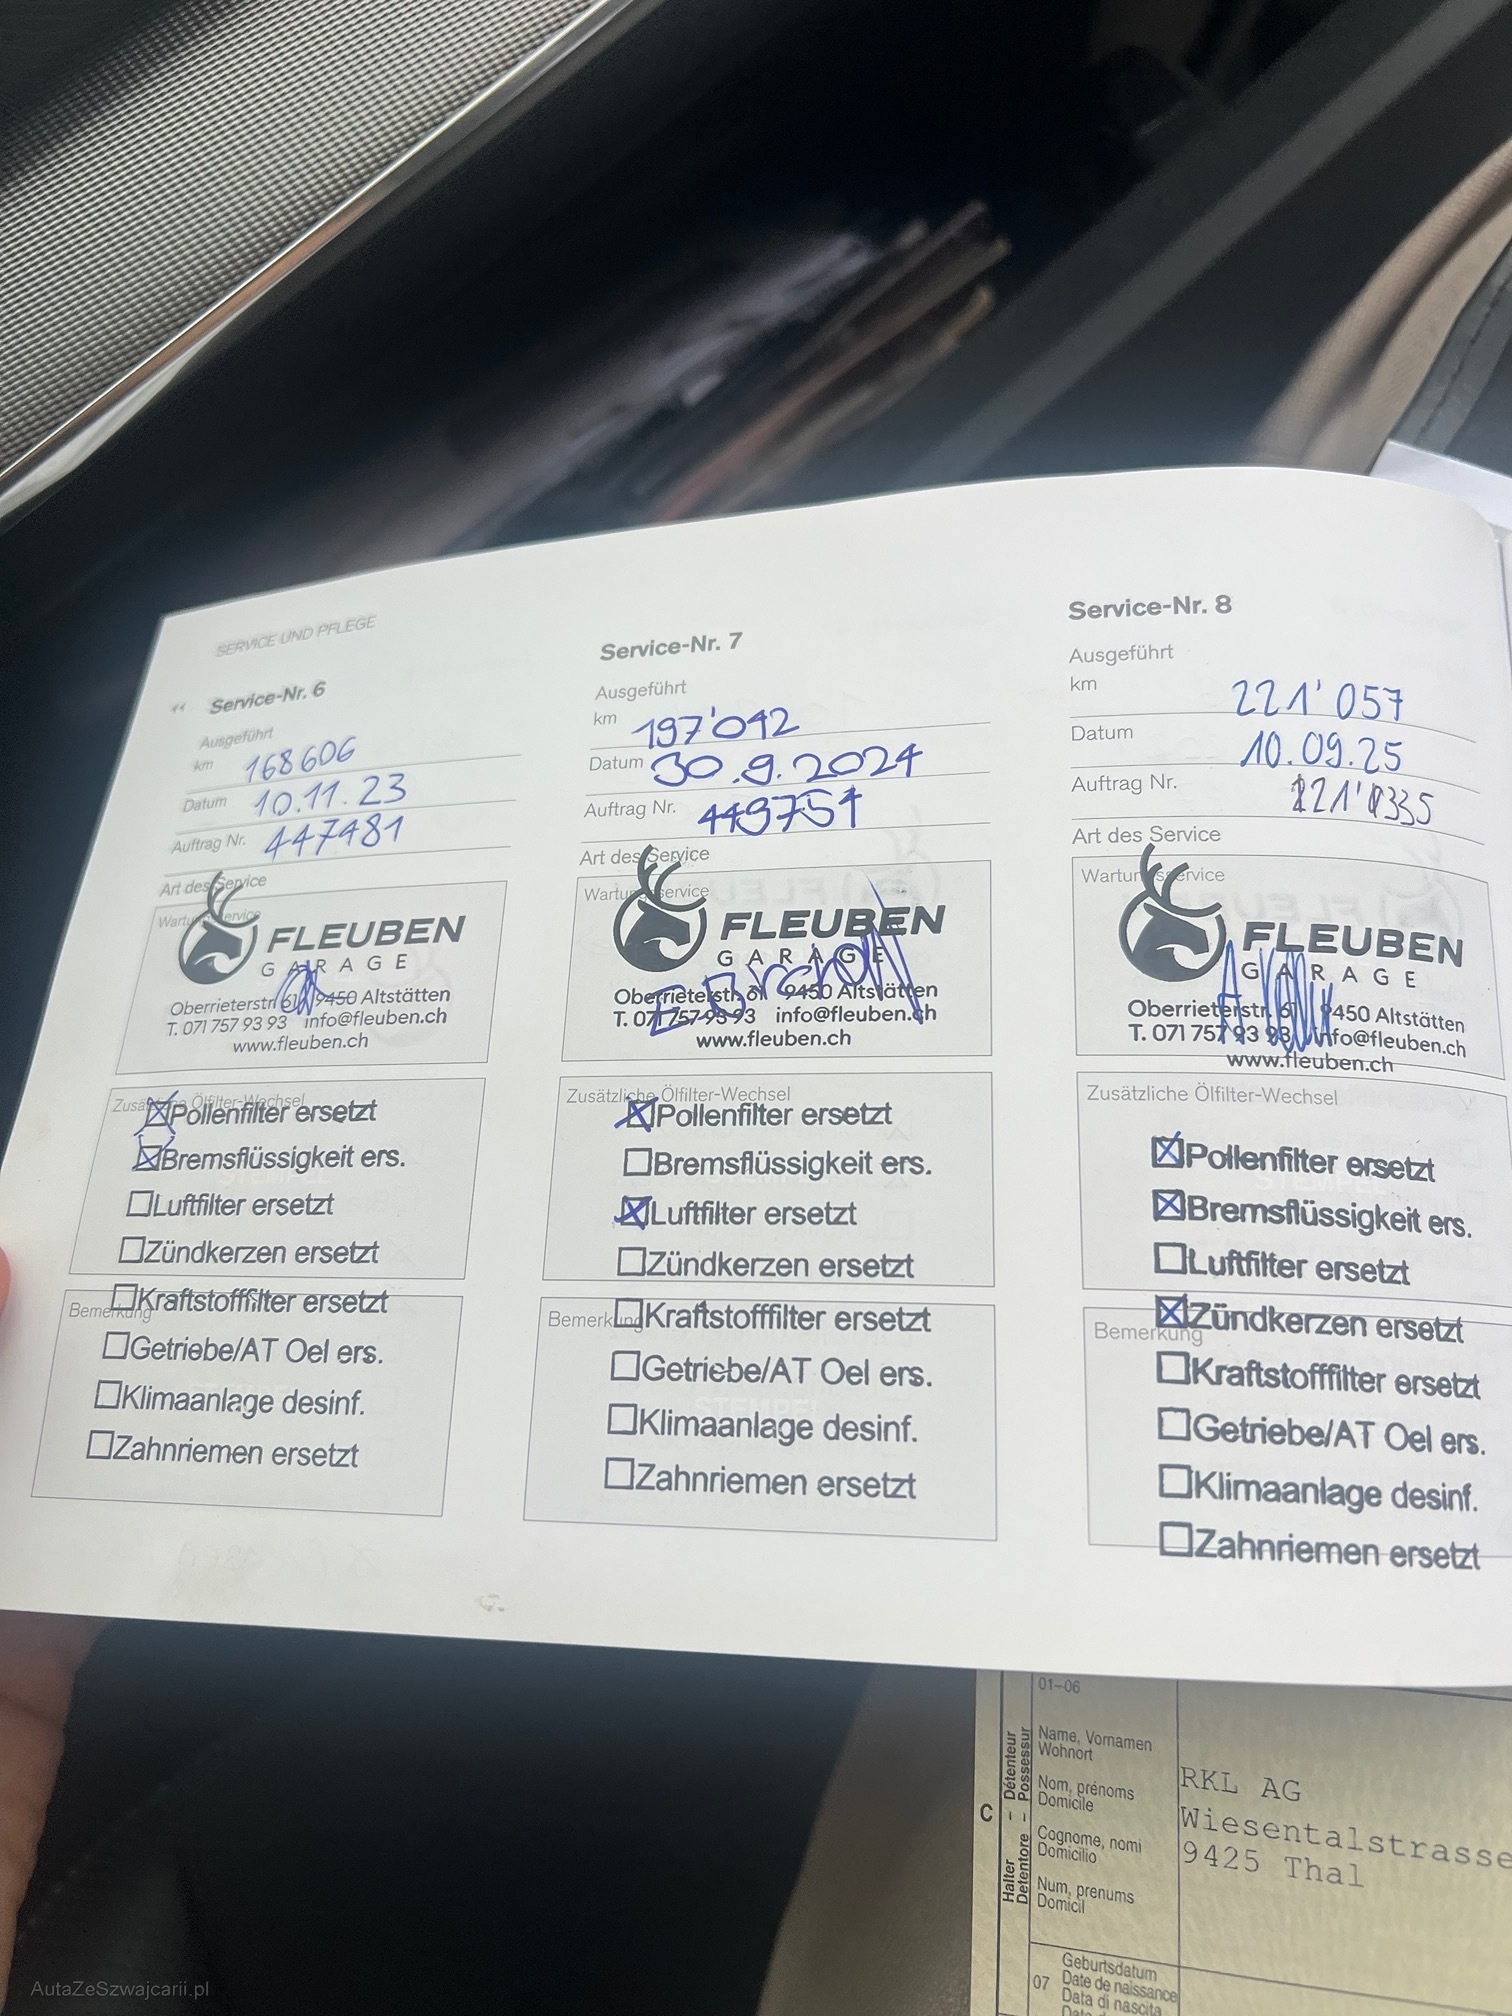 SERVICE UND PFLEGE
Service-Nr. 6
Ausgeführt
km 168606
Datum 10.11.23
Auftrag Nr. 447481
Art des Service
Wartungsservice
FLEUBEN
GARAGE
Oberrieterstr. 61, 9450 Altstätten
T. 071 757 93 93 info@fleuben.ch
www.fleuben.ch
Zusätzliche Ölfilter-Wechsel
Pollenfilter ersetzt
Bremsflüssigkeit ers.
Luftfilter ersetzt
Zündkerzen ersetzt
Bemerkung
Kraftstofffilter ersetzt
Getriebe/AT Oel ers.
Klimaanlage desinf.
Zahnriemen ersetzt
Service-Nr. 7
Ausgeführt
km 197'042
Datum 30.9.2024
Auftrag Nr. 449751
Art des Service
Wartungsservice
FLEUBEN
GARAGE
Oberrieterstr. 61 9450 Altstätten
T. 071 757 93 93 info@fleuben.ch
www.fleuben.ch
Zusätzliche Ölfilter-Wechsel
Pollenfilter ersetzt
Bremsflüssigkeit ers.
Luftfilter ersetzt
Zündkerzen ersetzt
Bemerkung
Kraftstofffilter ersetzt
Getriebe/AT Oel ers.
Klimaanlage desinf.
Zahnriemen ersetzt
Service-Nr. 8
Ausgeführt
km 221'057
Datum 10.09.25
Auftrag Nr.
Art des Service
Wartungsservice
FLEUBEN
GARAGE
Oberrieterstr. 61, 9450 Altstätten
T. 071 757 93 93 info@fleuben.ch
www.fleuben.ch
Zusätzliche Ölfilter-Wechsel
Pollenfilter ersetzt
Bremsflüssigkeit ers.
Luftfilter ersetzt
Zündkerzen ersetzt
Bemerkung
Kraftstofffilter ersetzt
Getriebe/AT Oel ers.
Klimaanlage desinf.
Zahnriemen ersetzt
01-06
C
Halter – Détenteur
Detentore – Possessur
Name, Vornamen
Wohnort
Nom, prénoms
Domicile
Cognome, nomi
Domicilio
Num, prenums
Domicil
RKL AG
Wiesentalstrasse
9425 Thal
07
Geburtsdatum
Date de naissance
Data di nascita
AutaZeSzwajcarii.pl